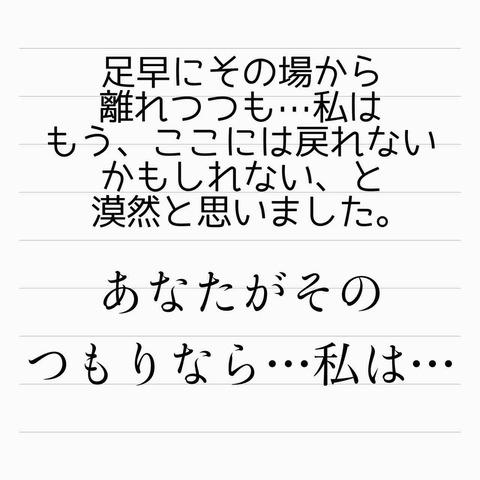 足早にその場から
離れつつも…私は
もう、ここには戻れない
かもしれない、と
漠然と思いました。
あなたがその
つもりなら…私は…